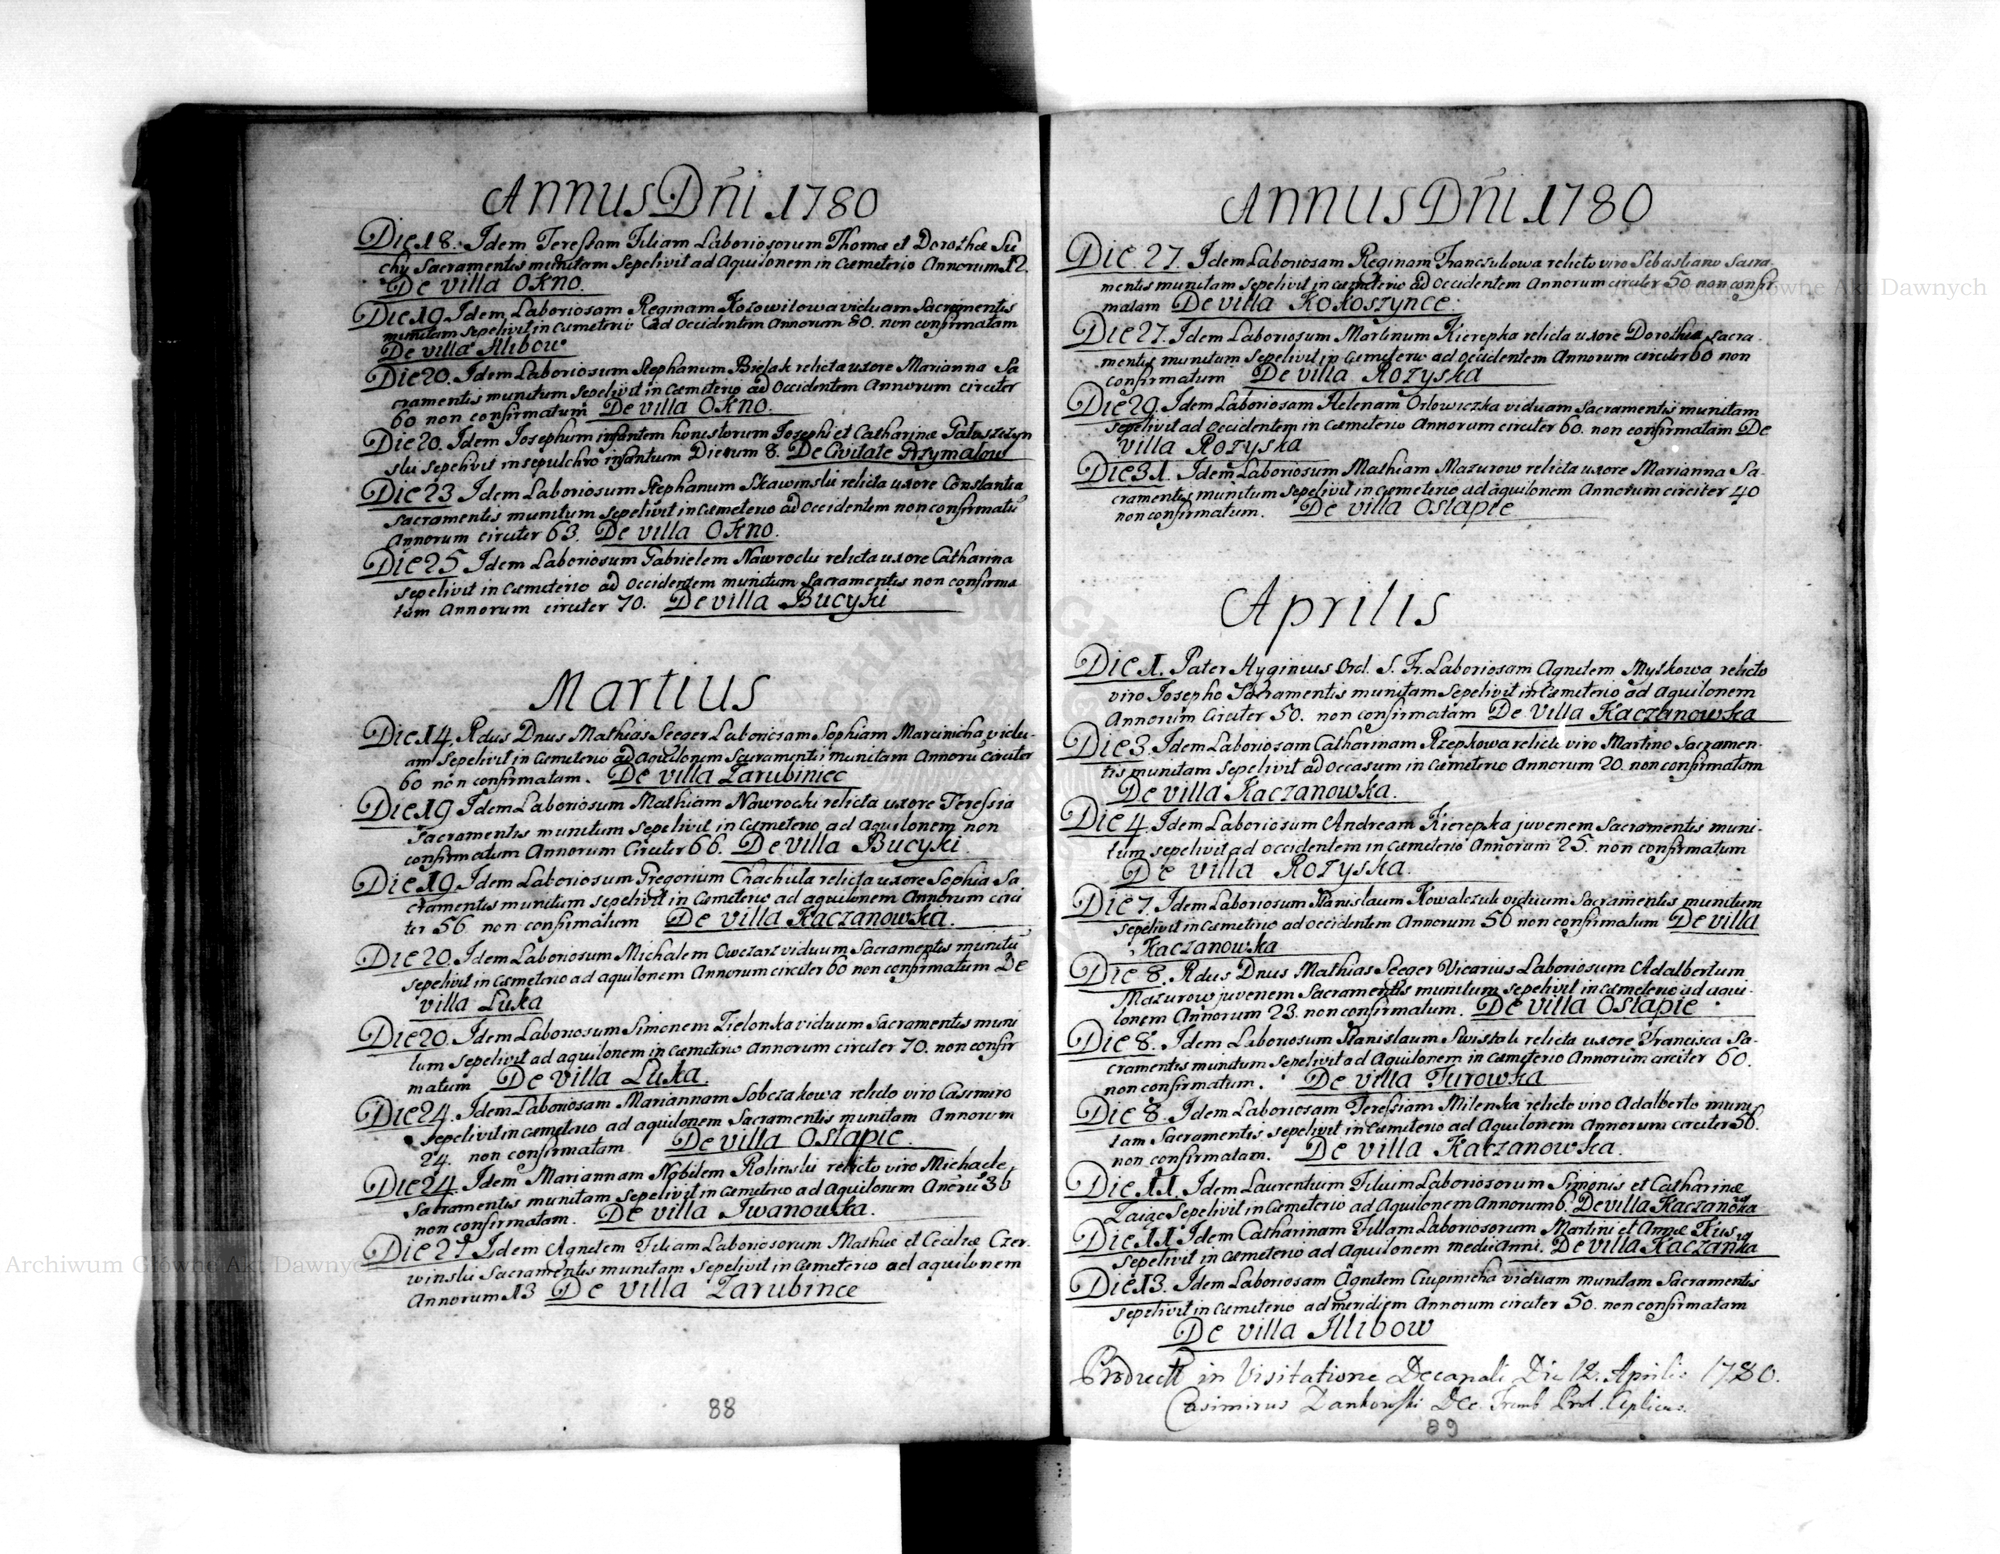 Annus Dñi 1780
Die 18. Idem Teressam Filiam Laboriosorum Thomæ et Dorothæ Su
chy Sacramentis munitam Sepelivit ad Aquilonem in Cæmeterio Annorum 12.
De villa Okno.
Die 19. Idem Laboriosam Reginam Kozowilowa viduam Sacramentis
munitam sepelivit in Cæmeterio ad Occidentem Annorum 80. non confirmatam
De villa Illibow
Die 20. Idem Laboriosum Stephanum Bielak relicta uxore Marianna Sa
cramentis munitum sepelivit in Cæmeterio ad Occidentem Annorum circiter
60 non confirmatum De villa Okno.
Die 20. Idem Josephum infantem honestorum Josephi et Catharinæ Gałaszczyn
ski sepelivit in sepulchro infantum Dierum 8. De Civitate Grzymałow
Die 23 Idem Laboriosum Stephanum Skawinski relicta uxore Constantia
sacramentis munitum sepelivit in Cæmeterio ad Occidentem non confirmatū
Annorum circiter 63. De villa Okno.
Die 25 Idem Laboriosum Gabrielem Nawrocki relicta uxore Catharina
sepelivit in Cæmeterio ad Occidentem munitum Sacramentis non confirma
tum Annorum circiter 70. De villa Bucyki
Martius
Die 14. Rdus Dnus Mathias Seeger Laboriosam Sophiam Marcinicha vidu-
am sepelivit in Cæmeterio ad Aquilonem Sacramentis munitam Annorū Circiter
60 non confirmatam. De villa Zarubiniec
Die 19 Idem Laboriosum Mathiam Nawrocki relicta uxore Teressia
Sacramentis munitum sepelivit in Cæmeterio ad Aquilonem non
confirmatum Annorum Circiter 66. De villa Bucyki.
Die 19. Idem Laboriosum Gregorium Chachuła relicta uxore Sophia Sa
cramentis munitum sepelivit in Cæmeterio ad aquilonem Annorum circi
ter 56 non confirmatum De villa Kaczanowka.
Die 20. Idem Laboriosum Michalem Owczarz viduum Sacramentis munitū
sepelivit in Cæmeterio ad aquilonem Annorum circiter 60 non confirmatum De
villa Luka
Die 20. Idem Laboriosum Simonem Zielonka viduum Sacramentis muni
tum sepelivit ad aquilonem in Cæmeterio Annorum circuter 70. non confir
matum De villa Luka.
Die 24. Idem Laboriosam Mariannam Sobczakowa relicto viro Casimiro
sepelivit in cæmeterio ad aquilonem Sacramentis munitam Annorum
24. non confirmatam De villa Ostapie.
Die 24. Idem Mariannam Nobilem Rolinski relicto viro Michaele
Sacramentis munitam sepelivit in Cæmeterio ad Aquilonem Anorū 36
non confirmatam. De villa Iwanowka.
Die 27. Idem Agnetem Filiam Laboriosorum Mathiæ et Ceciliæ Czer.
winski Sacramentis munitam sepelivit in Cæmeterio ad aquilonem
Annorum 13 De villa Zarubince
88
Annus Dñi 1780
Die 27. Idem Laboriosam Reginam Franczukowa relicto viro Sebastiano Sacra-
mentis munitam sepelivit in cæmeterio ad Occidentem Annorum circuter 50 non confir
matam De villa Kokoszynce.
Die 27. Idem Laboriosum Martinum Kierepka relicta uxore Dorothea Sacra-
mentis munitum sepelivit in Cæmiterio ad occidentem Annorum circiter 60 non
confirmatum De villa Rozyska
Die 29. Idem Laboriosam Helenam Orlowiczka viduam Sacramentis munitam
sepelivit ad Occidentem in Cæmeterio Annorum circuter 60. non confirmatam De
villa Rozyska
Die 31. Idem Laboriosum Mathiam Mazurow relicta uxore Marianna Sa-
cramentis munitum sepelivit in cæmeterio ad aquilonem Annorum circiter 40
non confirmatum. De villa Ostapie
Aprilis
Die 1. Pater Hyginius Ord. S. Fr. Laboriosam Agnetem Myskowa relicto
viro Josepho Sacramentis munitam sepelivit in Cæmeterio ad aquilonem
Annorum Circiter 50. non confirmatam De Villa Kaczanowska
Die 3. Idem Laboriosam Catharinam Rzepkowa relicto viro Martino Sacramen-
tis munitam sepelivit ad Occasum in Cæmeterio Annorum 20. non confirmatam
De villa Kaczanowka.
Die 4. Idem Laboriosum Andream Kierepka juvenem Sacramentis muni-
tum sepelivit ad occidentem in Cæmeterio Annorum 25. non confirmatum
De villa Rozyska.
Die 7. Idem Laboriosum Stanislaum Kowalczuk viduum Sacramentis munitum
sepelivit in Cæmeterio ad occidentem Annorum 56 non confirmatum De villa
Kaczanowka
Die 8. Rdus Dnus Mathias Seeger Vicarius Laboriosum Adalbertum
Mazurow juvenem Sacramentis munitum sepelivit in Cæmeterio ad aqui-
lonem Annorum 23. non confirmatum. De villa Ostapie
Die 8. Idem Laboriosum Stanislaum Swistak relicta uxore Francisca Sa-
cramentis munitum sepelivit ad Aquilonem in Cæmeterio Annorum circiter 60.
non confirmatum. De villa Turowka
Die 8. Idem Laboriosam Teressiam Milenka relicto viro Adalberto muni
tam Sacramentis sepelivit in Cæmeterio ad Aquilonem Annorum circuter 56.
non confirmatam. De villa Kaczanowka.
Die 11. Idem Laurentium Filium Laboriosorum Simonis et Catharinæ
Zaiac sepelivit in Cæmeterio ad Aquilonem Annorum 6. De villa Kaczanowka
Die 11. Idem Catharinam Filiam Laboriosorum Martini et Annæ Kus
sepelivit in Cæmeterio ad Aquilonem medii Anni. De villa Kaczanowka
Die 13. Idem Laboriosam Agnetem Ciupinicha viduam munitam Sacramentis
sepelivit in Cæmeterio ad meridiem Annorum circuter 50. non confirmatam
De villa Illibow
Product in Visitatione Decanali Die 12. Aprilis 1780.
Casimirus Dankowski Dec.
89
Archiwum Główne Akt Dawnych
Archiwum Główne Akt Dawnych